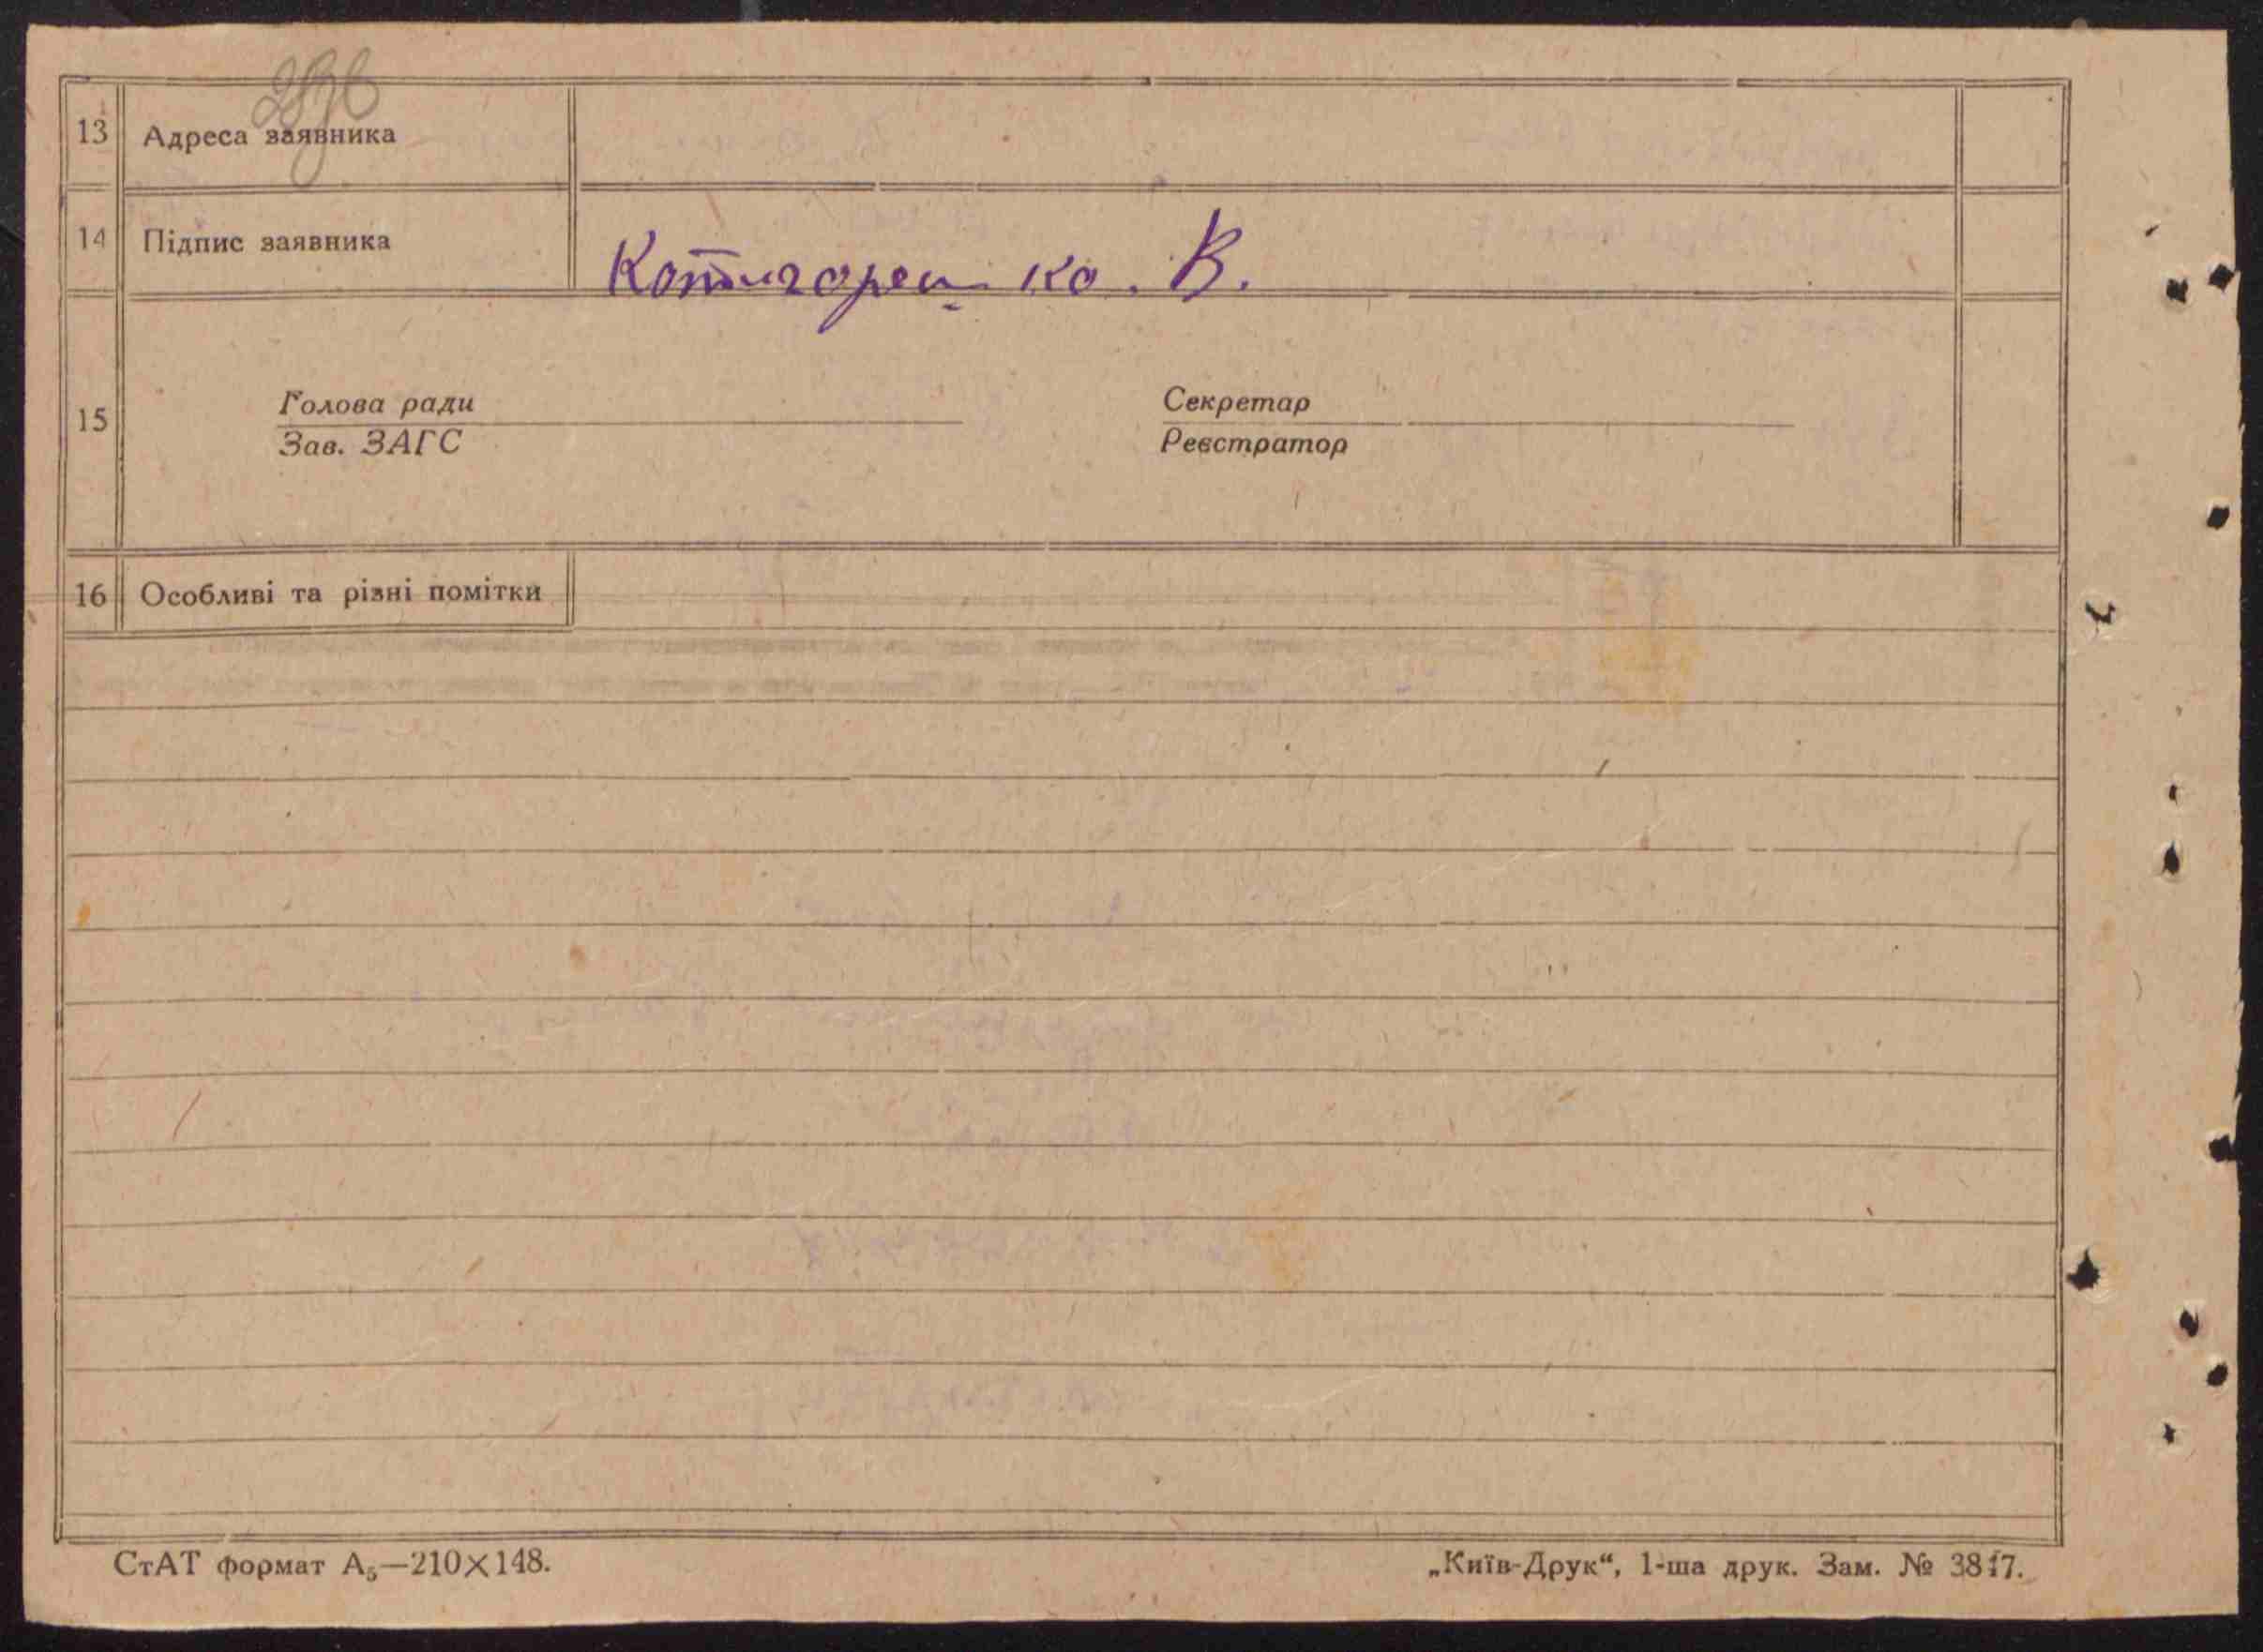 13 Адреса заявника
14 Підпис заявника Котигорешко. В.
15 Голова ради Секретар
Зав. ЗАГС Реєстратор
16 Особливі та різні помітки
СтАТ формат А₅—210×148. „Київ-Друк“, 1-ша друк. Зам. № 3817.